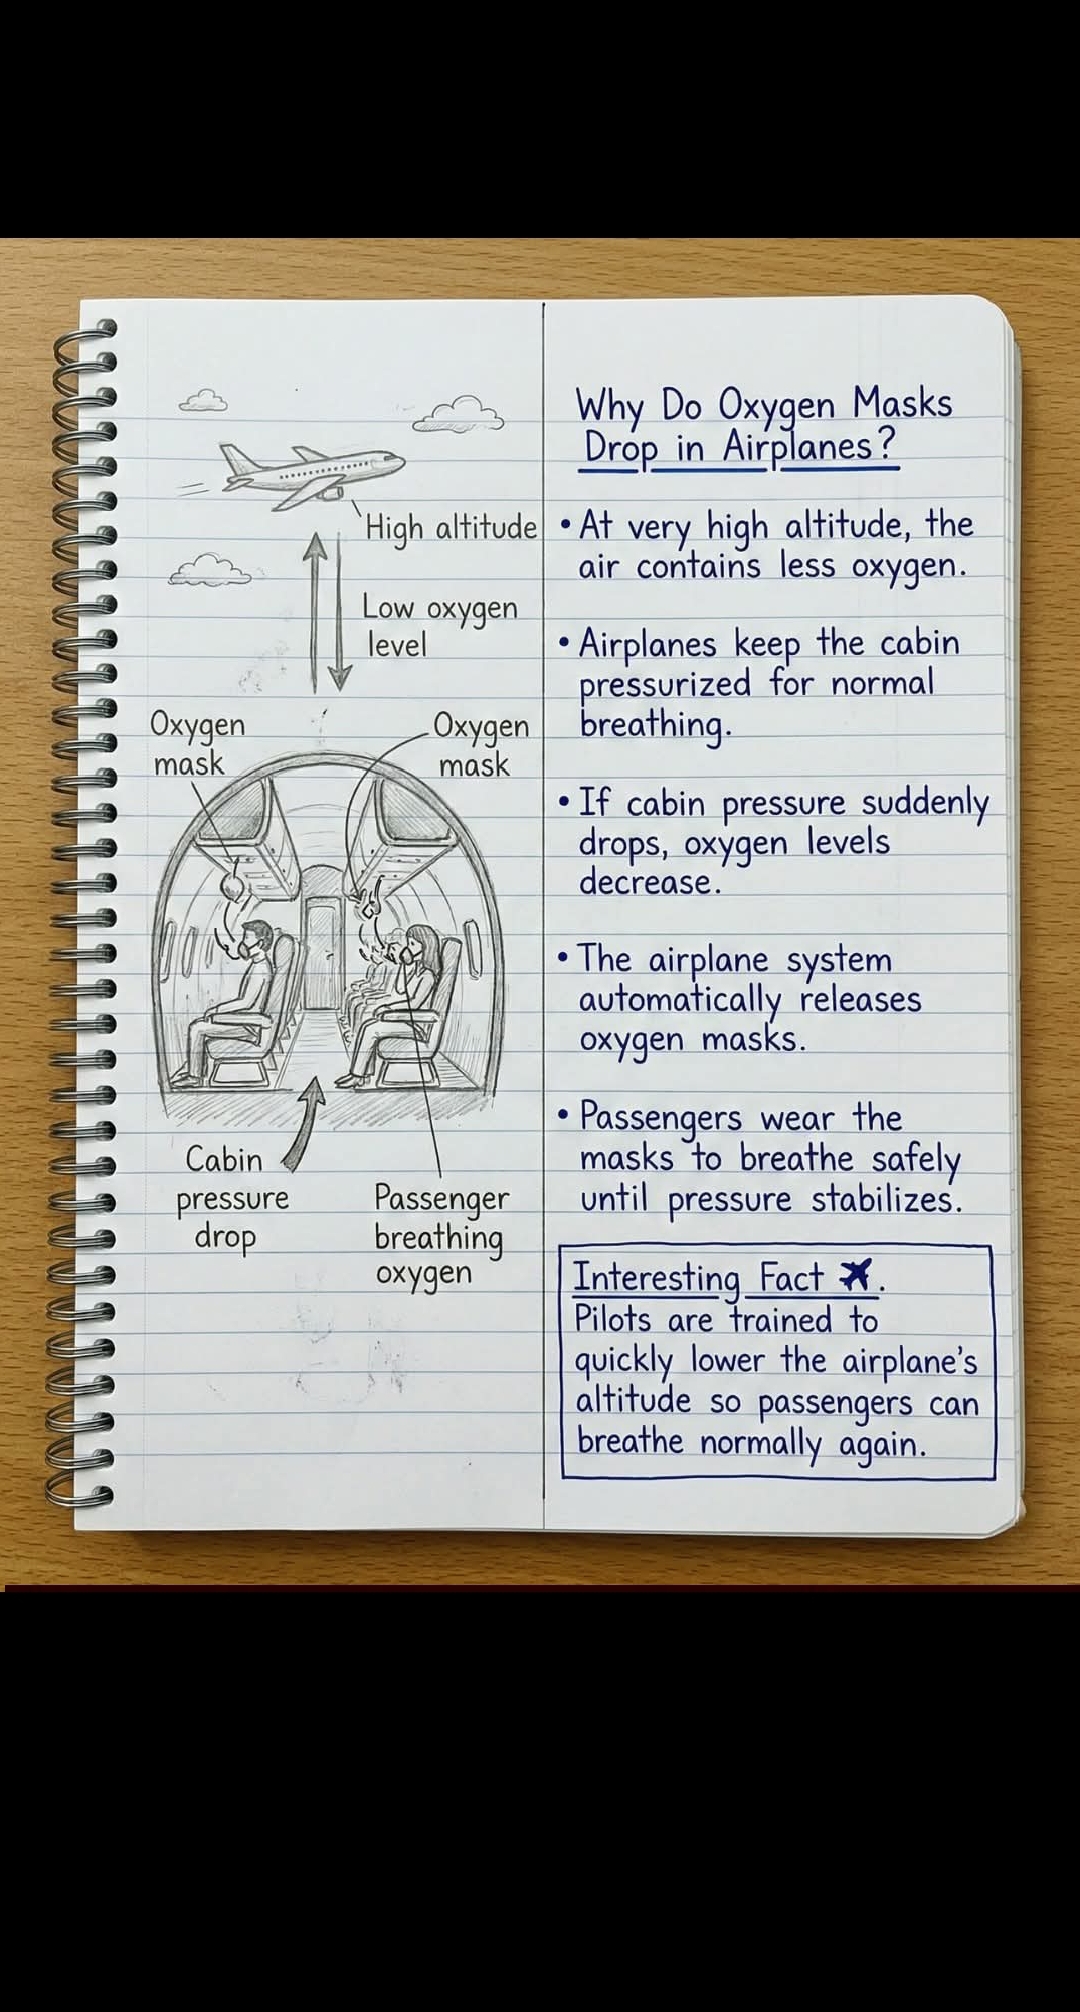 High altitude
Low oxygen
level
Oxygen
mask
Oxygen
mask
Cabin
pressure
drop
Passenger
breathing
oxygen
Why Do Oxygen Masks
Drop in Airplanes?
• At very high altitude, the
air contains less oxygen.
• Airplanes keep the cabin
pressurized for normal
breathing.
• If cabin pressure suddenly
drops, oxygen levels
decrease.
• The airplane system
automatically releases
oxygen masks.
• Passengers wear the
masks to breathe safely
until pressure stabilizes.
Interesting Fact ✈.
Pilots are trained to
quickly lower the airplane's
altitude so passengers can
breathe normally again.